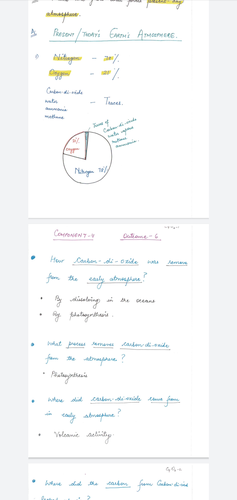 atmosphere.
PRESENT / TODAY'S EARTH'S ATMOSPHERE.
Nitrogen - 78 %.
Oxygen -
Carbon-di-oxide
water
ammonia
methane
- Traces.
Traces of
Carbon-di-oxide
water vapour
methane
ammonia.
oxygen
Nitrogen 78%
COMPONENT-2
How Carbon-di-oxide was remove
from the early atmosphere?
By dissolving in the oceans
By photosynthesis.
What process removes carbon-di-oxide
from the atmosphere?
Photosynthesis
Where did carbon-di-oxide come from
in early atmosphere?
Volcanic activity.
Where did the carbon from Carbon-di-oxide